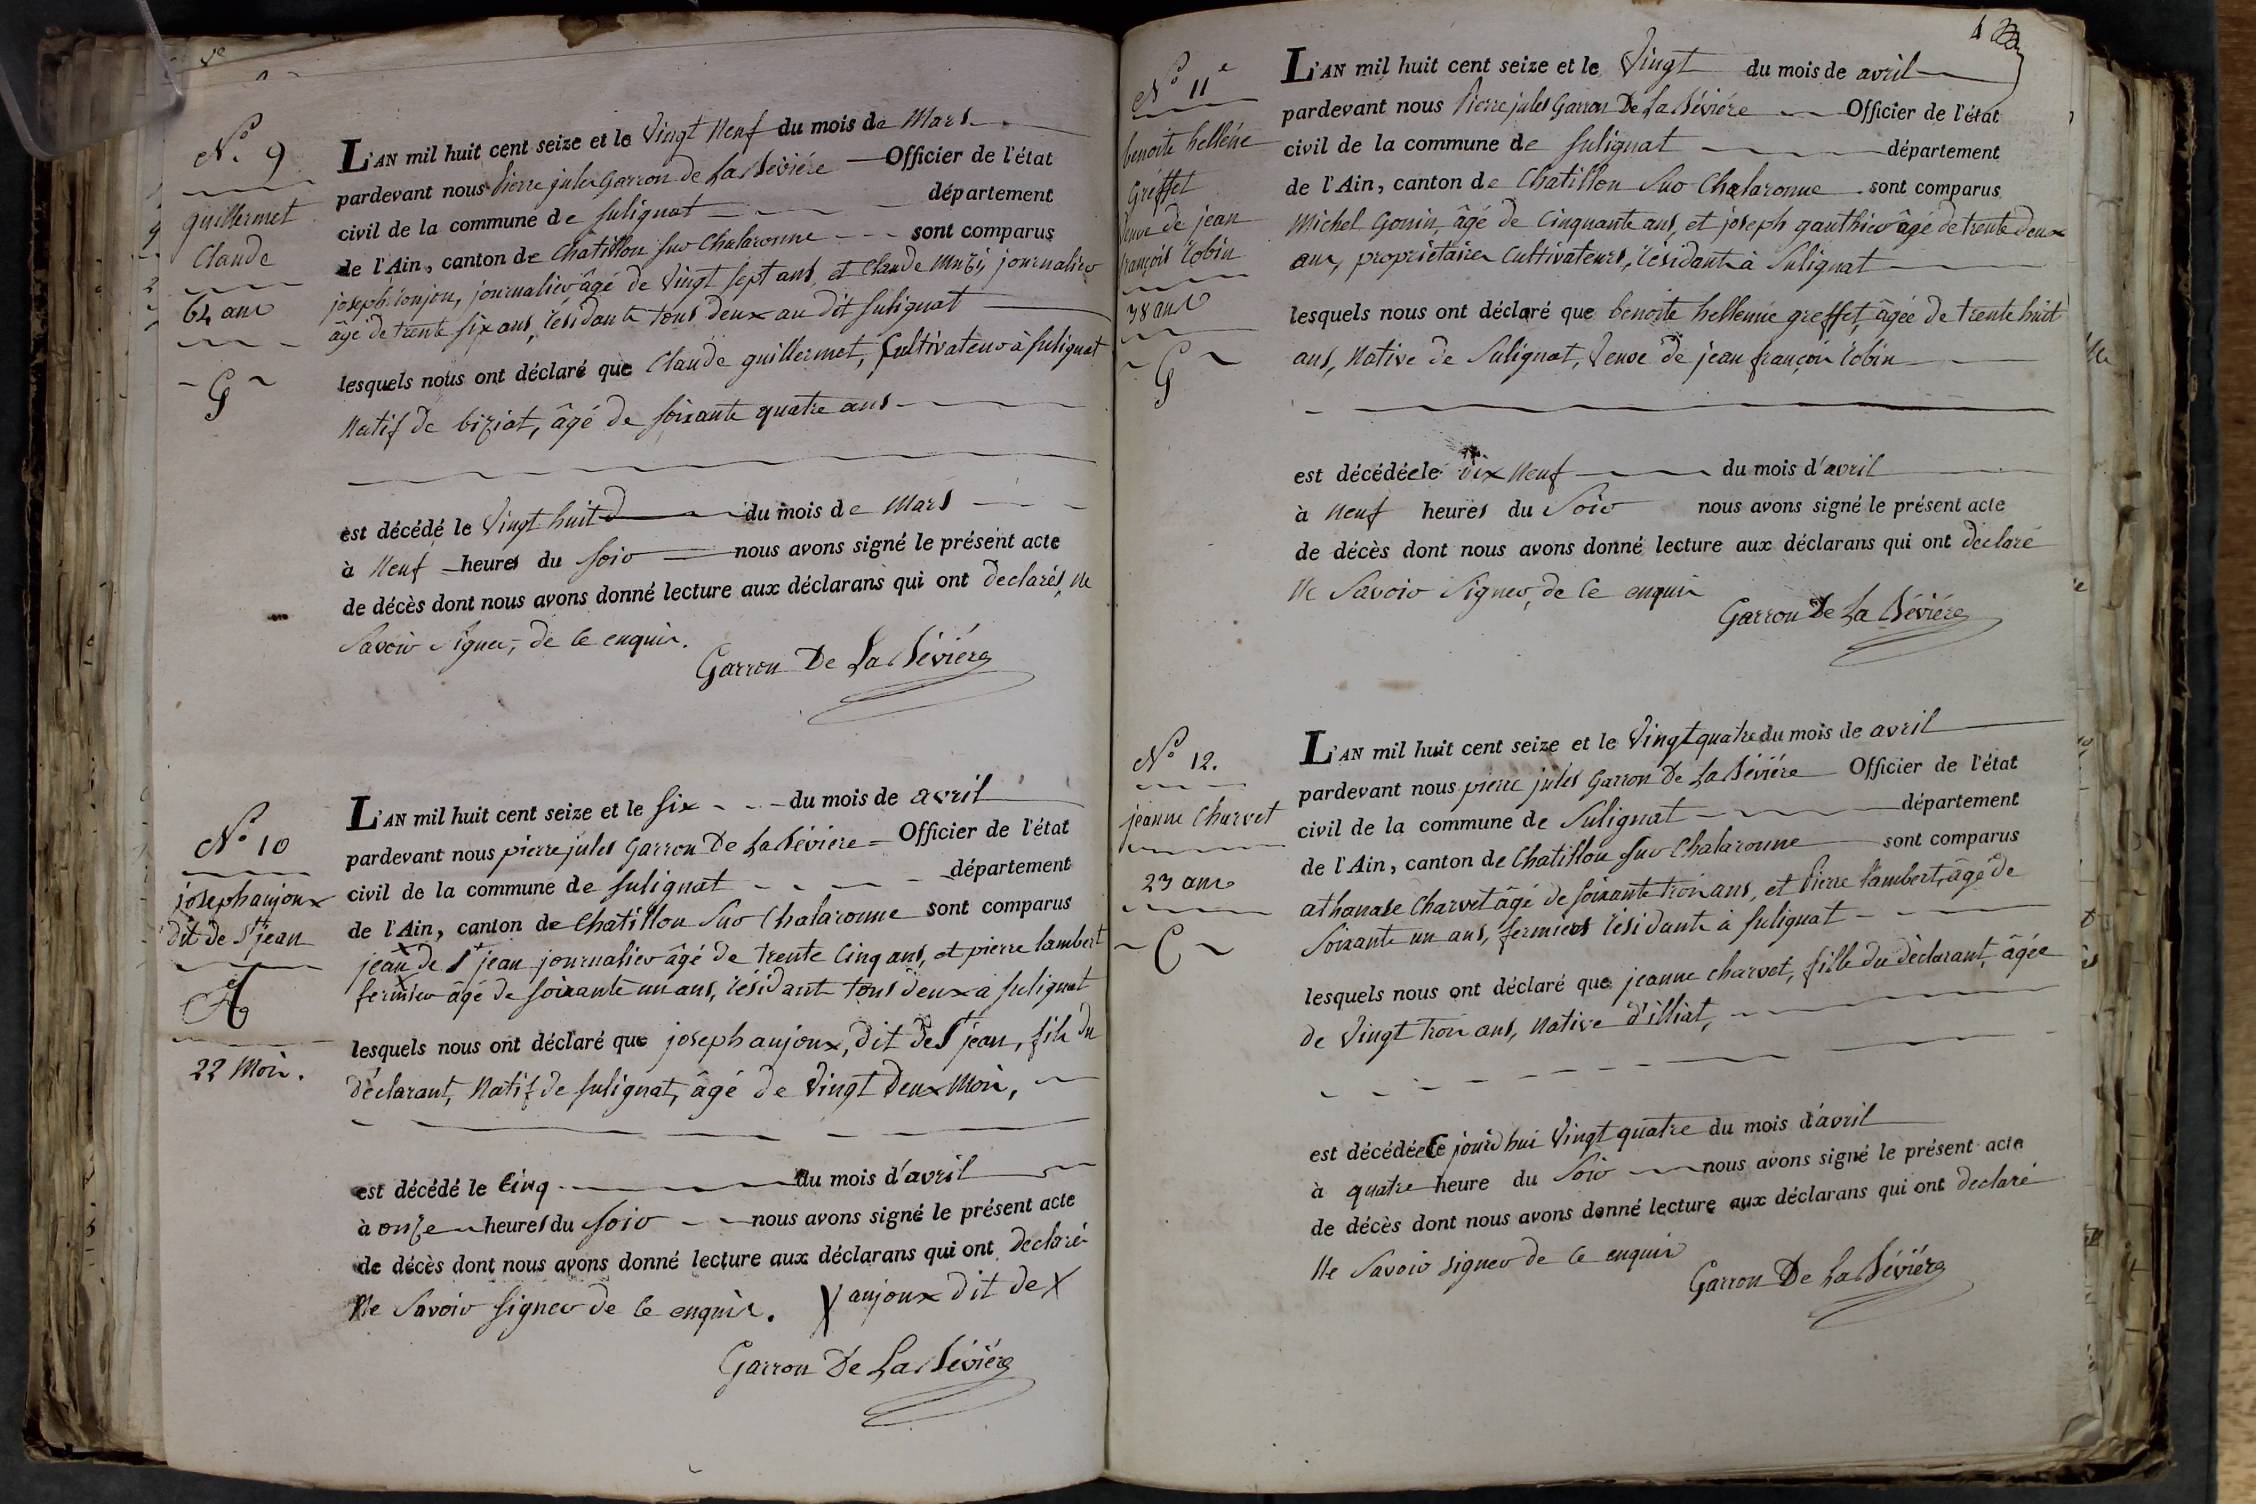 N.° 9
guillermet
Claude
64 ans
G
L'AN mil huit cent seize et le Vingt Neuf du mois de Mars
pardevant nous Pierre jules Garron de La Béviére Officier de l'état
civil de la commune de Sulignat département
de l'Ain, canton de Chatillon sur Chalaronne sont comparus
joseph Conjon, journalier âgé de Vingt sept ans, et Claude journalier
âgé de trente six ans, résidants tous deux au dit Sulignat
lesquels nous ont déclaré que Claude guillermet, Cultivateur à Sulignat
Natif de biziat, âgé de soixante quatre ans
est décédé le Vingt huit du mois de Mars
à Neuf heures du soir nous avons signé le présent acte
de décès dont nous avons donné lecture aux déclarans qui ont declarés, Ne
Savoir Signer, de ce enquis.
Garron De La Béviére
N° 10
joseph anjoux
dit de St jean
A
22 Mois.
L'AN mil huit cent seize et le six du mois de avril
pardevant nous pierre jules Garron De La Béviére Officier de l'état
civil de la commune de Sulignat département
de l'Ain, canton de Chatillon Sur Chalaronne sont comparus
jean x de St jean journalier âgé de trente Cinq ans, et pierre lambert
fermier âgé de soixante un ans, résidant tous deux a Sulignat
lesquels nous ont déclaré que joseph anjoux, dit de St jean, fils du
déclarant, Natif de Sulignat, âgé de Vingt Deux Mois,
est décédé le Cinq du mois d'avril
à onze heures du soir nous avons signé le présent acte
de décès dont nous avons donné lecture aux déclarans qui ont declaré
Ne Savoir signer de ce enquis. X anjoux dit de X
Garron De La Béviére
N° 11e
benoite helléne
Gréffet
Veuve de jean
françois robin
38 ans
G
L'AN mil huit cent seize et le Vingt du mois de avril
pardevant nous Pierre jules Garron De La Béviére Officier de l'état
civil de la commune de Sulignat département
de l'Ain, canton de Chatillon Sur Chalaronne sont comparus
Michel Gonin, âgé de Cinquante ans, et joseph gauthier âgé de trente deux
ans, propriétaires Cultivateurs, résidants à Sulignat
lesquels nous ont déclaré que benoite hellenne greffet, âgée de trente huit
ans, Native de Sulignat, Veuve de jean françois robin
est décédée le dix Neuf du mois d'avril
à Neuf heures du Soir nous avons signé le présent acte
de décès dont nous avons donné lecture aux déclarans qui ont declaré
Ne Savoir Signer, de ce enquis
Garron De La Béviére
N° 12.
jeanne Charvet
23 ans
C
L'AN mil huit cent seize et le Vingt quatre du mois de avril
pardevant nous pierre jules Garron De La Béviére Officier de l'état
civil de la commune de Sulignat département
de l'Ain, canton de Chatillon sur Chalaronne sont comparus
athanase Charvet âgé de soixante trois ans, et Pierre lambert, âgé de
Soixante un ans, fermiers résidants à Sulignat
lesquels nous ont déclaré que jeanne charvet, fille du déclarant, âgée
de Vingt trois ans, Native d'illiat,
est décédée Ce jourd'hui Vingt quatre du mois d'avril
à quatre heure du Soir nous avons signé le présent acte
de décès dont nous avons donné lecture aux déclarans qui ont declaré
Ne Savoir signer de ce enquis
Garron De La Béviére